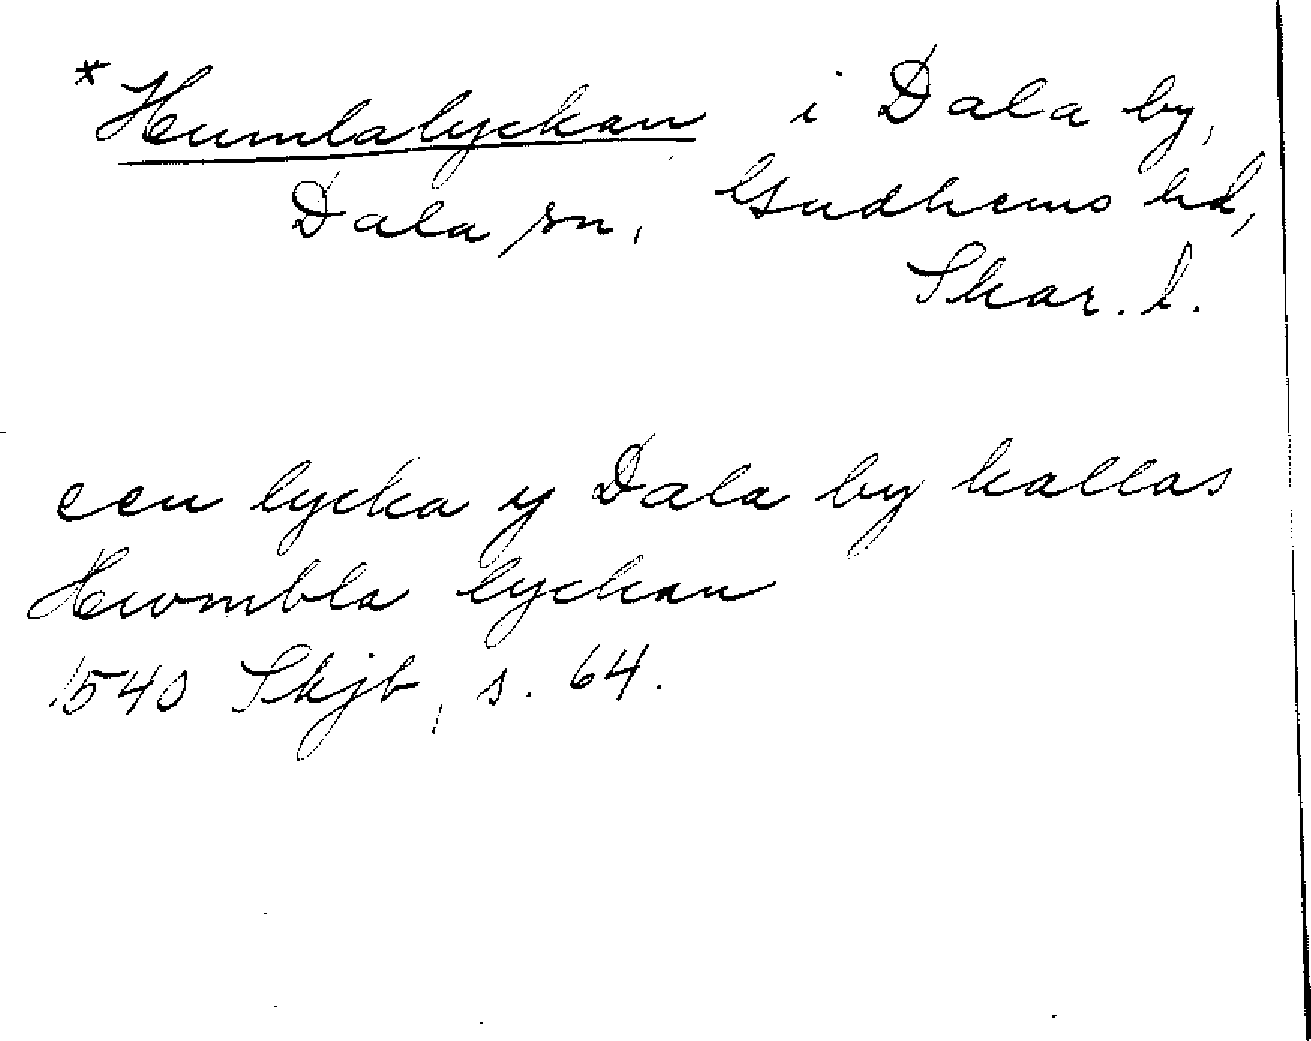 *Humlalyckan i Dala by,
Dala sn, Gudhems hd,
Skar. l.
een lycka y Dala by kallas
Hwmbla lyckan
1540 Skjb, s. 64.